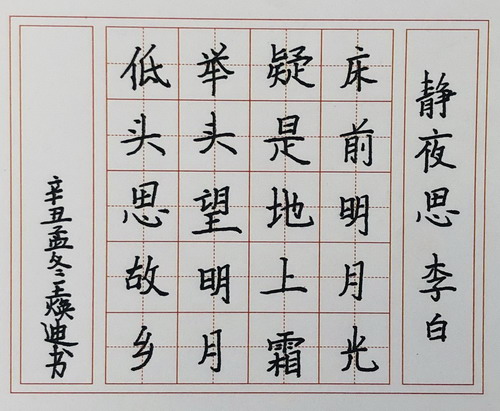 静夜思 李白
床前明月光
疑是地上霜
举头望明月
低头思故乡
辛丑孟冬王焕迪书